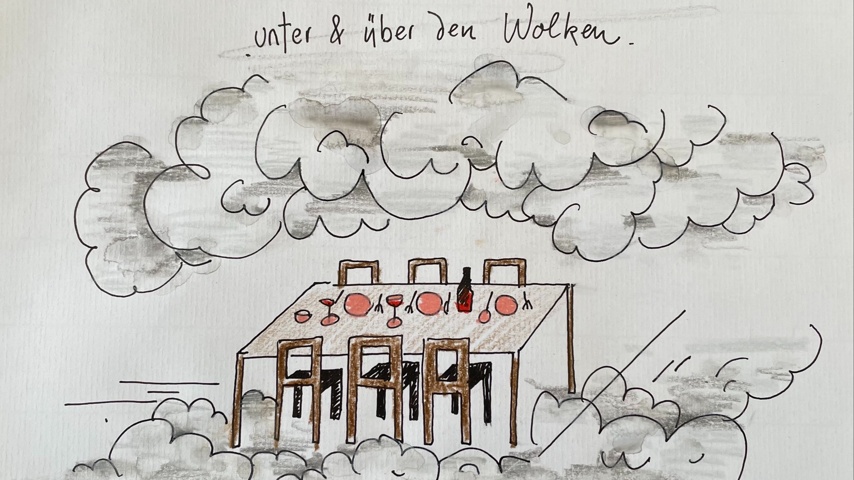 unter & über den Wolken.